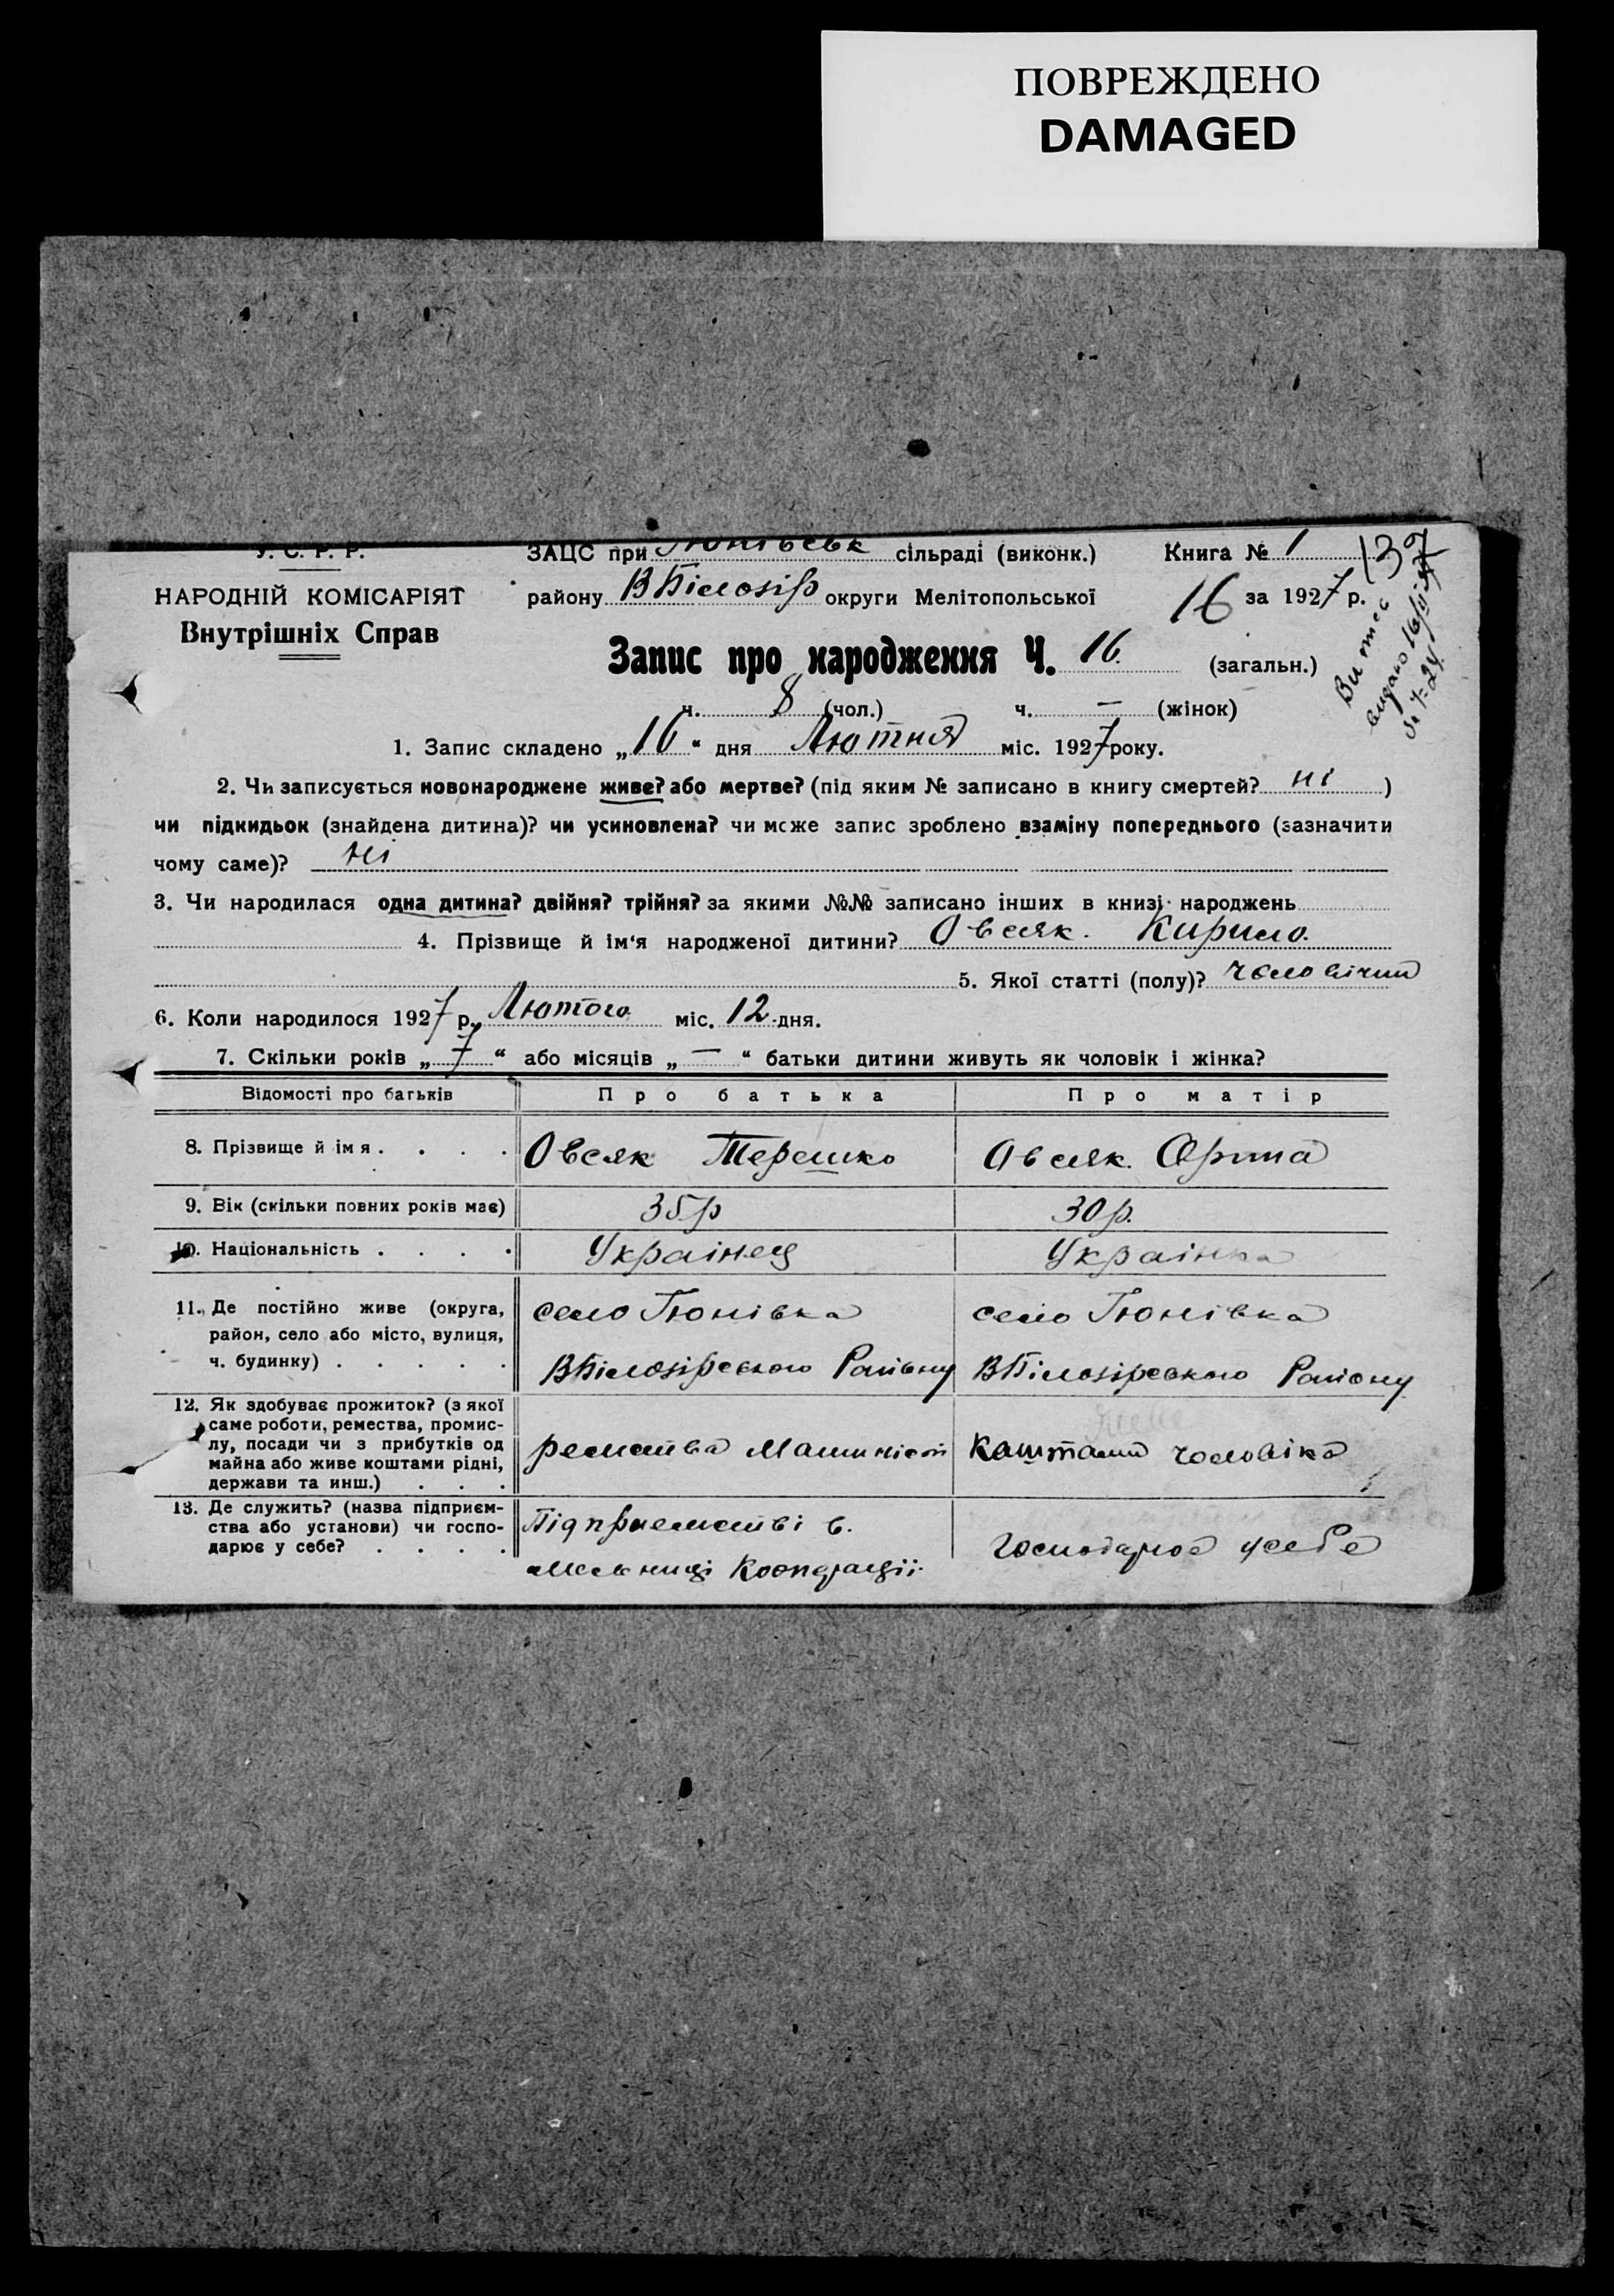 ПОВРЕЖДЕНО
DAMAGED
У. С. Р. Р.
НАРОДНІЙ КОМІСАРІЯТ
Внутрішніх Справ
ЗАЦС при Тюнівськ сільраді (виконк.) Книга № 1
району ВБілозір округи Мелітопольської 16 за 1927 р.
Запис про народження Ч. 16. (загальн.)
ч. 8 (чол.) ч. — (жінок)
1. Запис складено „16“ дня Лютня міс. 1927 року.
2. Чи записується новонароджене живе? або мертве? (під яким № записано в книгу смертей? ні )
чи підкидьок (знайдена дитина)? чи усиновлена? чи може запис зроблено взаміну попереднього (зазначити
чому саме)? ні
3. Чи народилася одна дитина? двійня? трійня? за якими №№ записано інших в книзі народжень
4. Прізвище й ім‘я народженої дитини? Овсяк. Кирило.
5. Якої статті (полу)? чоловічий
6. Коли народилося 1927 р. Лютого міс. 12 дня.
7. Скільки років „7“ або місяців „—“ батьки дитини живуть як чоловік і жінка?
Відомості про батьків Про батька Про матір
8. Прізвище й імя . . . . Овсяк Терешко Овсяк. Орина
9. Вік (скільки повних років має) 35р 30р.
10. Національність . . . . Українец Українка
11. Де постійно живе (округа, село Тюнівка село Тюнівка
район, село або місто, вулиця,
ч. будинку) . . . . . ВБілозірського Району ВБілозірського Району
12. Як здобуває прожиток? (з якої
саме роботи, ремества, промис-
лу, посади чи з прибутків од ремества Машиніст Каштами чоловіка
майна або живе коштами рідні,
держави та инш.) . . .
13. Де служить? (назва підприєм- Підприемстві в.
ства або установи) чи госпо-
дарює у себе? . . . . мельниці Кооперації. Господарює усебе